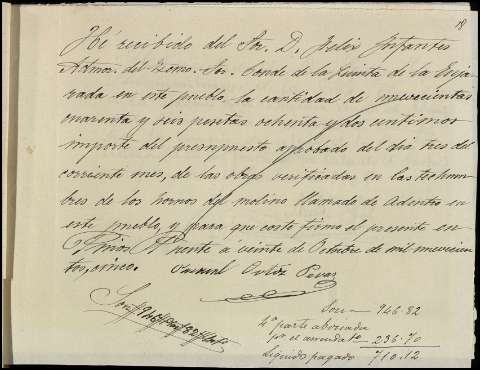 18
Hé recibido del Sor. D. Felix Infantes
Admor. del Exmo. Sor. Conde de la Quinta de la Enja-
rada en este pueblo, la cantidad de nuevecientas
cuarenta y seis pesetas ochenta y dos centimos
importe del presupuesto aprobado del dia tres del
corriente mes, de las obras verificadas en las techum-
bres de los hornos del molino llamado de Adentro en
este pueblo, y para que coste firmo el presente en
á veinte de Octubre de mil nuevecien-
tos, cinco.
Son 946.82
4ª parte abonada
por el arrendato 236.70
Líquido pagado 710.12